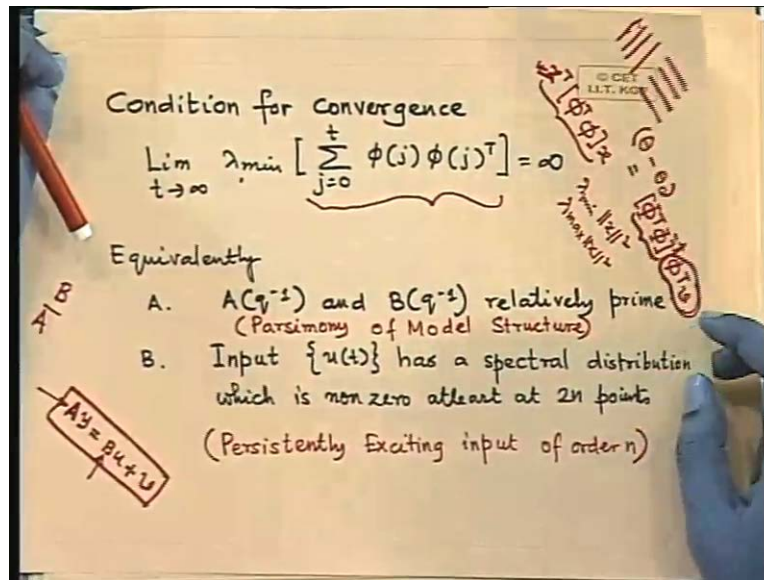 Condition for convergence
Lim t→∞ λmin [ ∑ j=0 t φ(j) φ(j)ᵀ ] = ∞
Equivalently
A. A(q⁻¹) and B(q⁻¹) relatively prime
(Parsimony of Model Structure)
B. Input {u(t)} has a spectral distribution
which is non zero atleast at 2n points
(Persistently Exciting input of order n)
B
A
Ay = Bu + v
© CET
I.I.T. KGP
xᵀ [φᵀφ] x
λmin ‖x‖²
λmax ‖x‖²
(θ - θ)
=
[φᵀφ]⁻¹ φᵀv